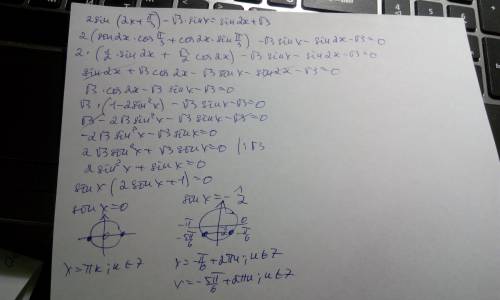 2sin(2x+π/3) - √3 sinx = sin2x+√3
2(sin2x·cos π/3 + cos2x·sin π/3) - √3 sinx - sin2x - √3=0
2·(1/2 sin2x + √3/2 cos2x) - √3 sinx - sin2x - √3=0
sin2x + √3 cos2x - √3 sinx - sin2x - √3=0
√3·cos2x - √3 sinx - √3=0
√3·(1-2sin²x) - √3 sinx - √3=0
√3 - 2√3 sin²x - √3 sinx - √3=0
-2√3 sin²x - √3 sinx=0
2√3 sin²x + √3 sinx=0 |:√3
2 sin²x + sinx=0
sinx(2sinx+1)=0
sinx=0 sinx=-1/2
-π 0
-5π/6 -π/6
x=πn; n∈Z x=-π/6+2πn; n∈Z
x=-5π/6+2πn; n∈Z